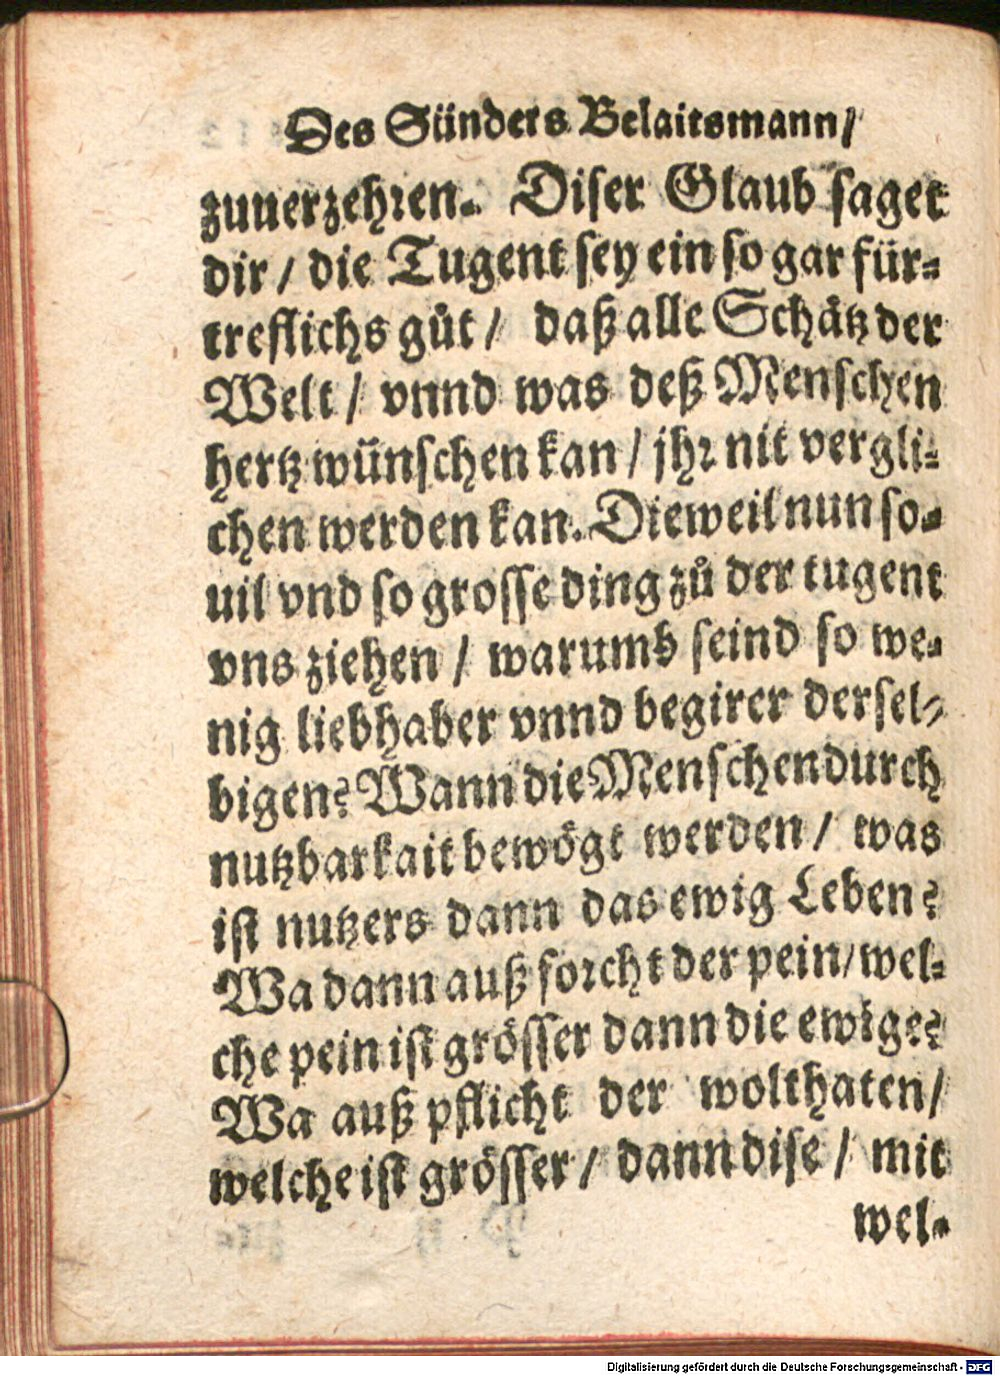 Des Sünders Belaitsmann/
zuuerzehren. Diser Glaub saget
dir / die Tugent sey ein so gar für-
treflichs gůt / daß alle Schätz der
Welt / vnnd was deß Menschen
hertz wünschen kan / jhr nit vergli-
chen werden kan. Dieweil nun so-
uil vnd so grosse ding zů der tugent
vns ziehen / warumb seind so we-
nig liebhaber vnnd begirer dersel-
bigen? Wann die Menschen durch
nutzbarkait bewögt werden / was
ist nutzers dann das ewig Leben?
Wa dann auß forcht der pein/wel-
che pein ist grösser dann die ewige?
Wa auß pflicht der wolthaten/
welche ist grösser / dann dise / mit
wel-
Digitalisierung gefördert durch die Deutsche Forschungsgemeinschaft - DFG